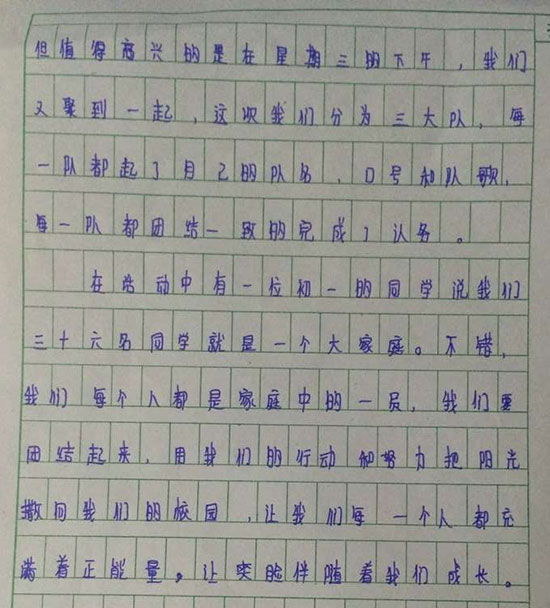 但值得高兴的是在星期三的下午，我们
又聚到一起，这次我们分为三大队，每
一队都起了自己的队名、口号和队歌，
每一队都团结一致的完成了认务。
在活动中有一位初一的同学说我们
三十六名同学就是一个大家庭。不错，
我们每个人都是家庭中的一员，我们要
团结起来，用我们的行动和努力把阳光
撒回我们的校园，让我们每一个人都充
满着正能量。让笑脸伴随着我们成长。